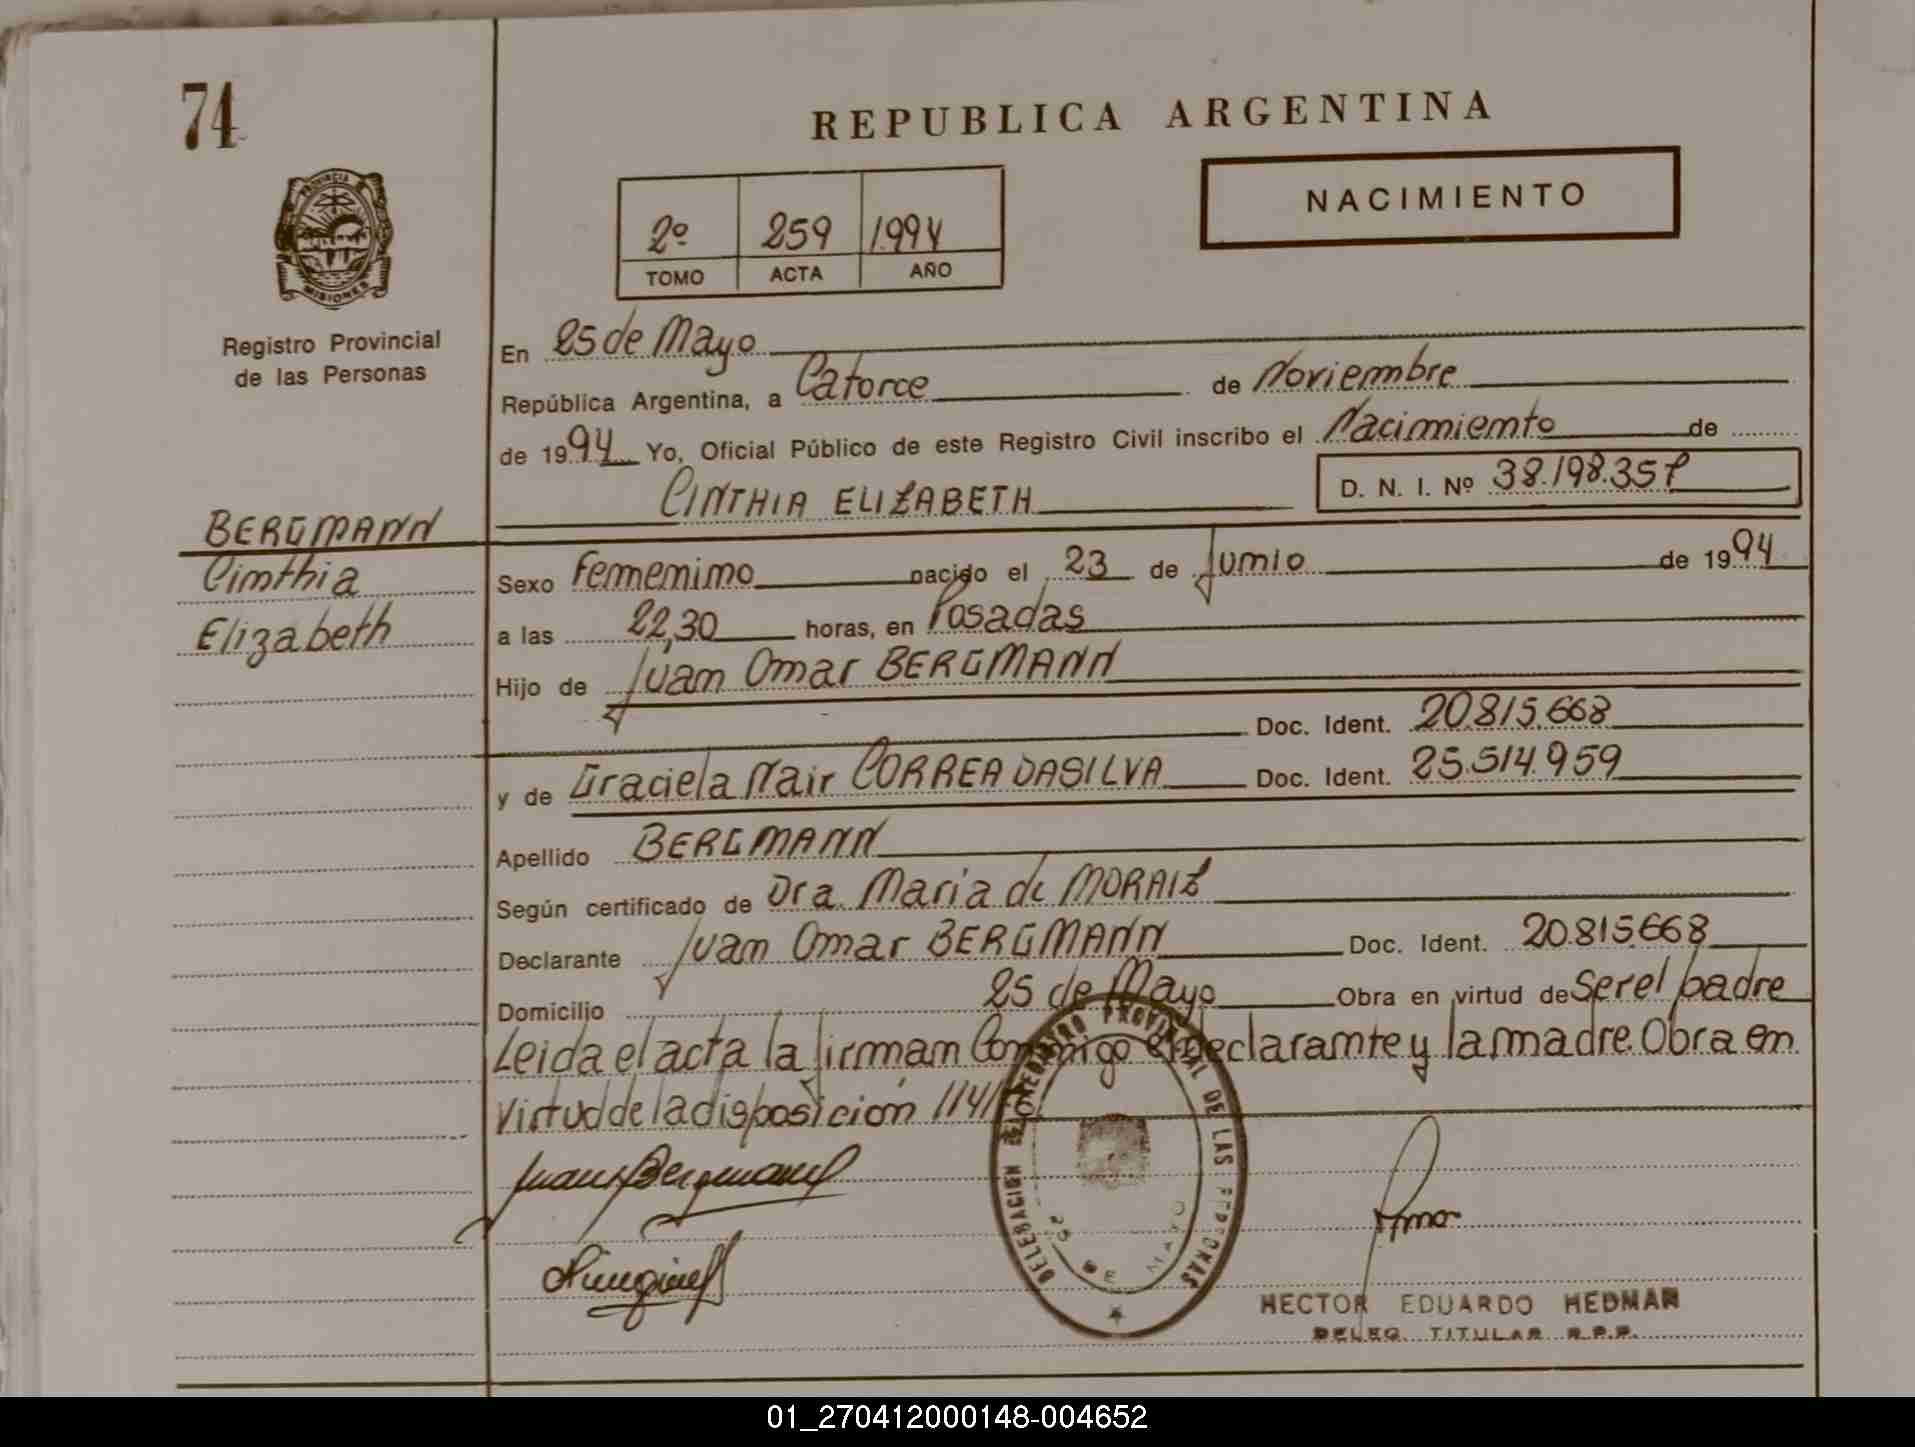 74
REPUBLICA ARGENTINA
NACIMIENTO
2º 259 1.994
TOMO ACTA AÑO
PROVINCIA DE
MISIONES
Registro Provincial
de las Personas
En 25 de Mayo
República Argentina, a Catorce de Noviembre
de 1994 Yo, Oficial Público de este Registro Civil inscribo el Nacimiento de
CINTHIA ELIZABETH D. N. I. Nº 38.198.357
BERGMANN
Cinthia
Elizabeth
Sexo Femenino nacido el 23 de Junio de 1994
a las 22,30 horas, en Posadas
Hijo de Juan Omar BERGMANN
Doc. Ident. 20.815.668
y de Graciela Nair CORREA DASILVA Doc. Ident. 25.514.959
Apellido BERGMANN
Según certificado de Dra. Maria de MORAIZ
Declarante Juan Omar BERGMANN Doc. Ident. 20.815.668
Domicilio 25 de Mayo Obra en virtud de Ser el padre
Leida el acta la firman Conmigo el declarante y la madre. Obra en
virtud de la disposición 114/
Juan Bergmann
DELEGACION REGISTRO PROVINCIAL DE LAS PERSONAS
25 DE MAYO
HECTOR EDUARDO HEDMAN
DELEG. TITULAR R.P.P.
01_270412000148-004652